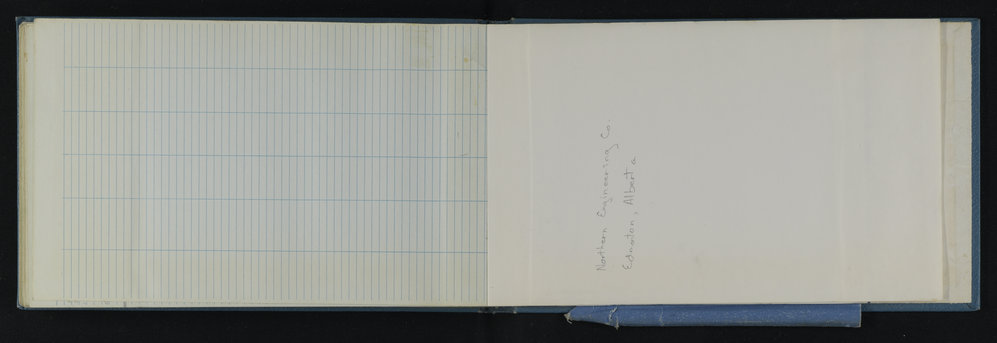 Northern Engineering Co.
Edmonton, Alberta